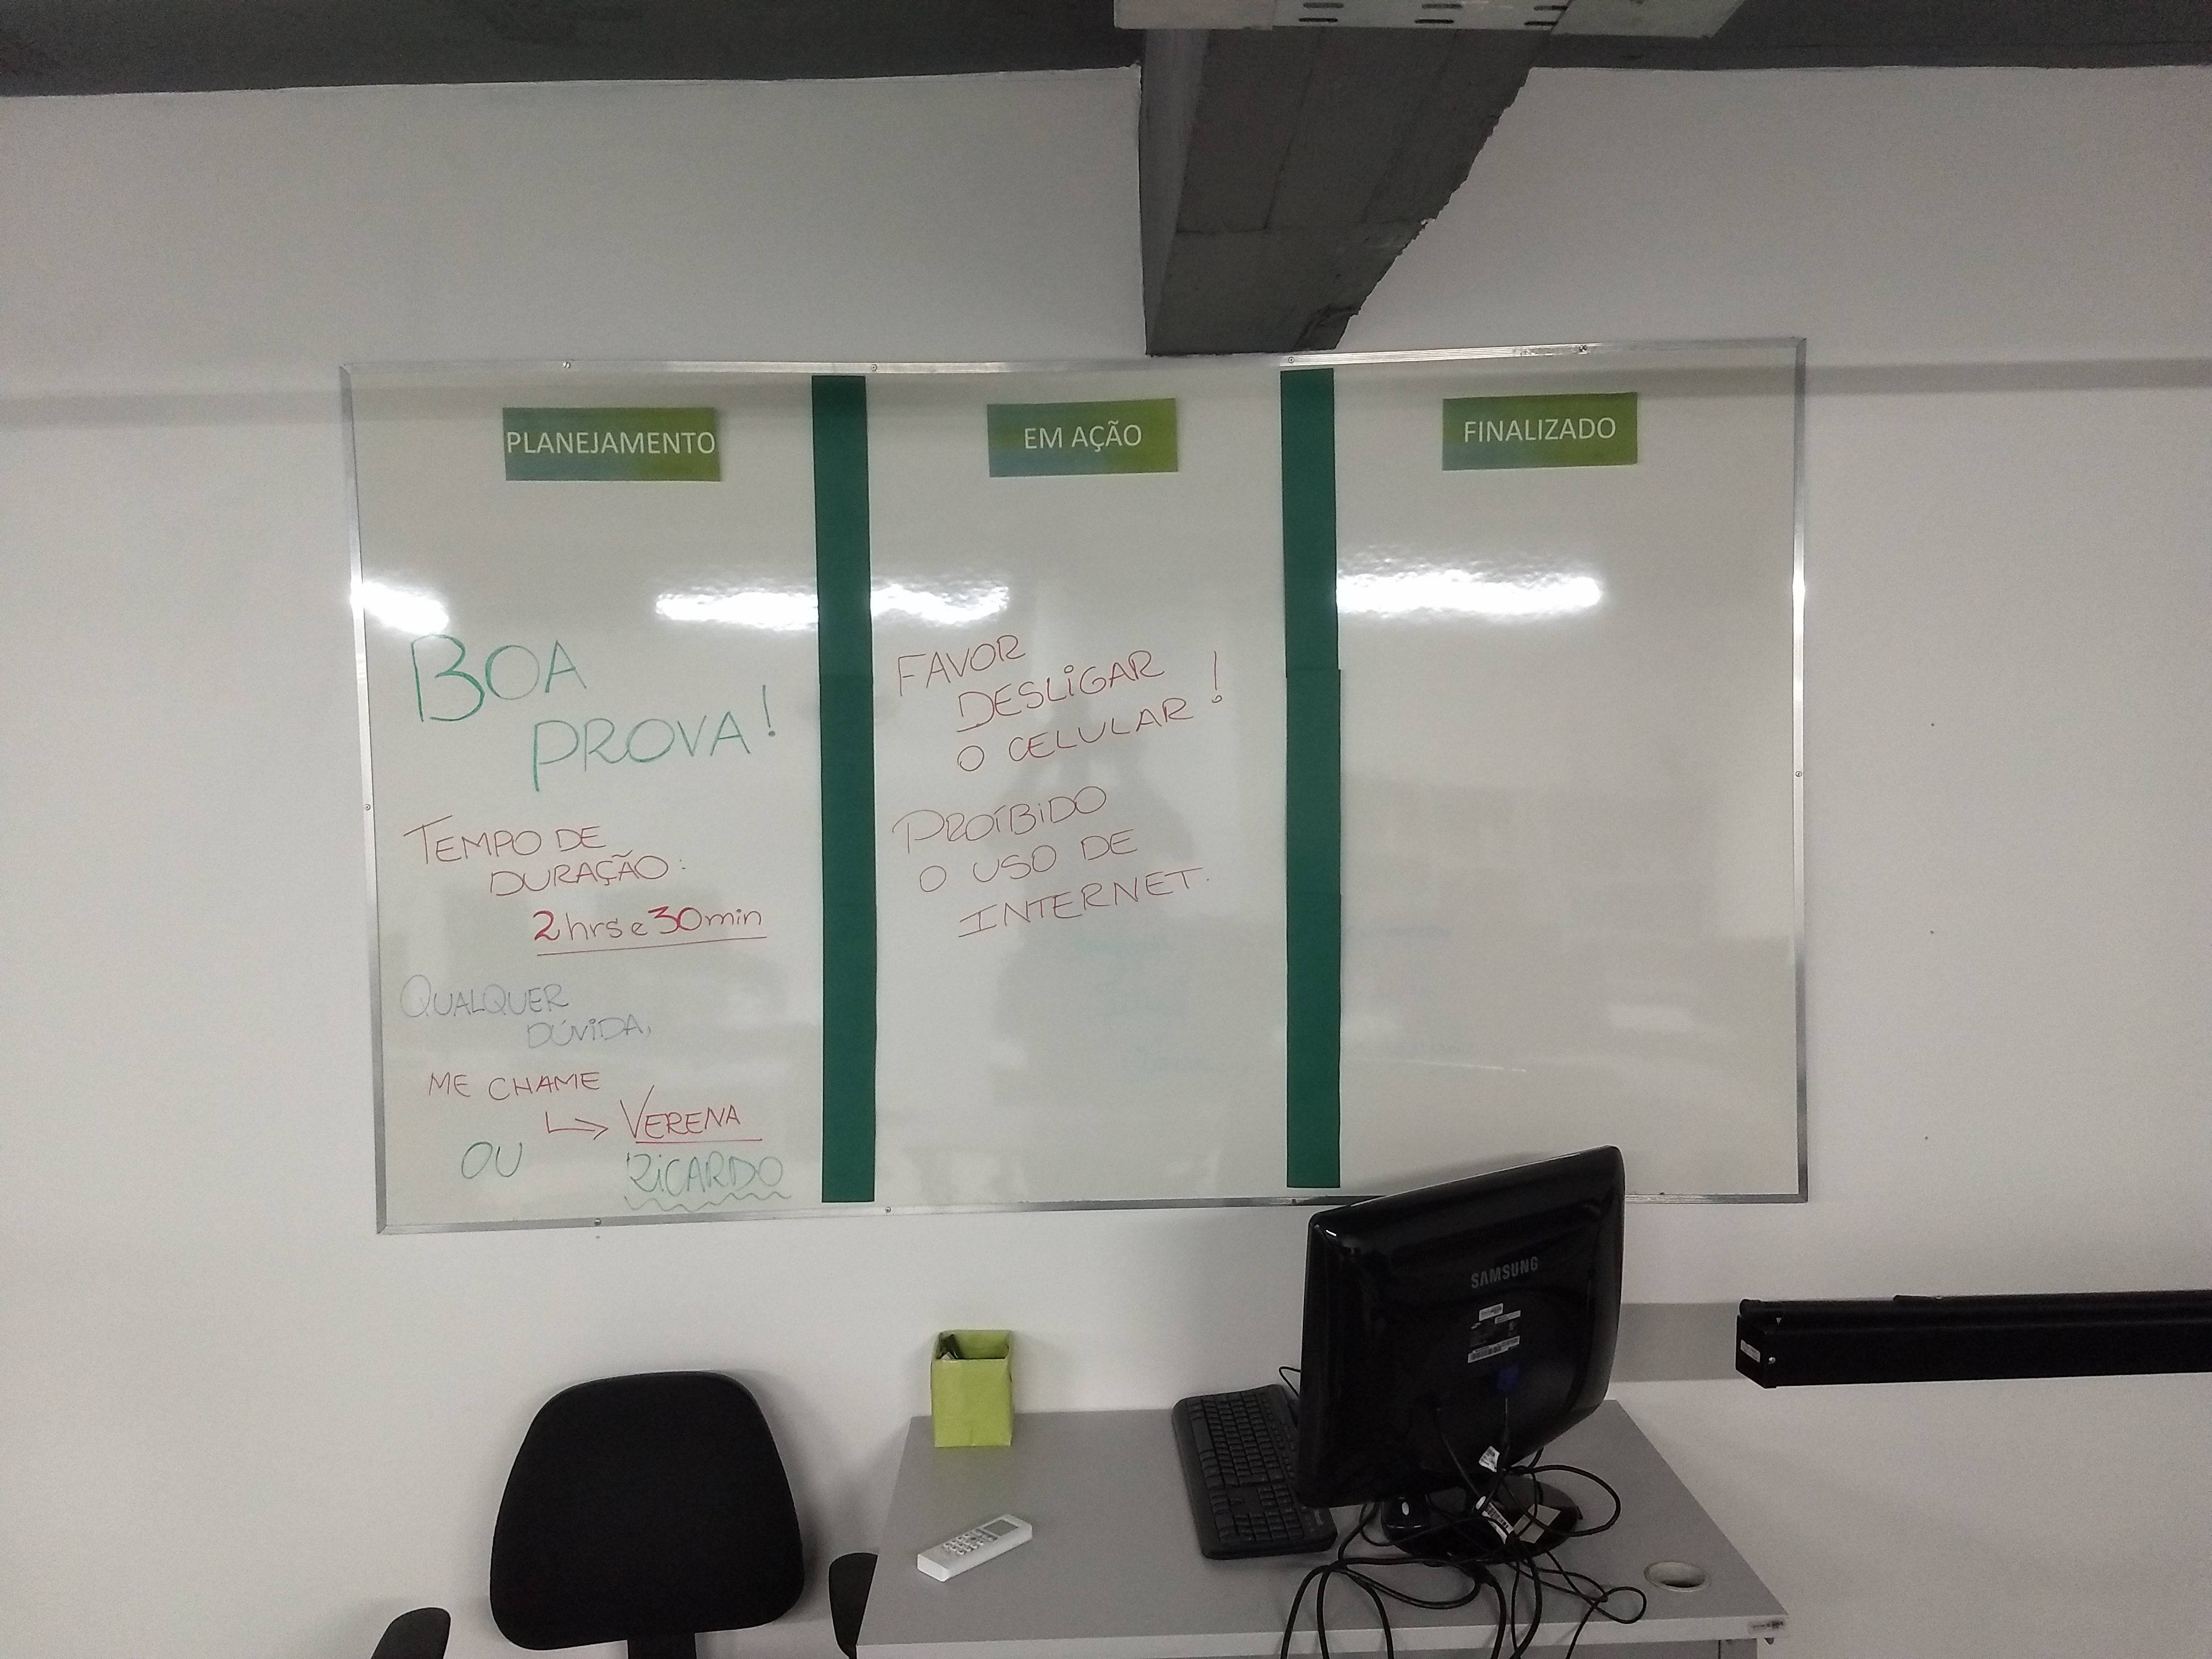 PLANEJAMENTO
BOA
PROVA!
TEMPO DE
DURAÇÃO:
2hrs e 30min
QUALQUER
DÚVIDA,
ME CHAME
VERENA
OU RICARDO
EM AÇÃO
FAVOR
DESLIGAR
O CELULAR!
PROÍBIDO
O USO DE
INTERNET.
FINALIZADO
SAMSUNG